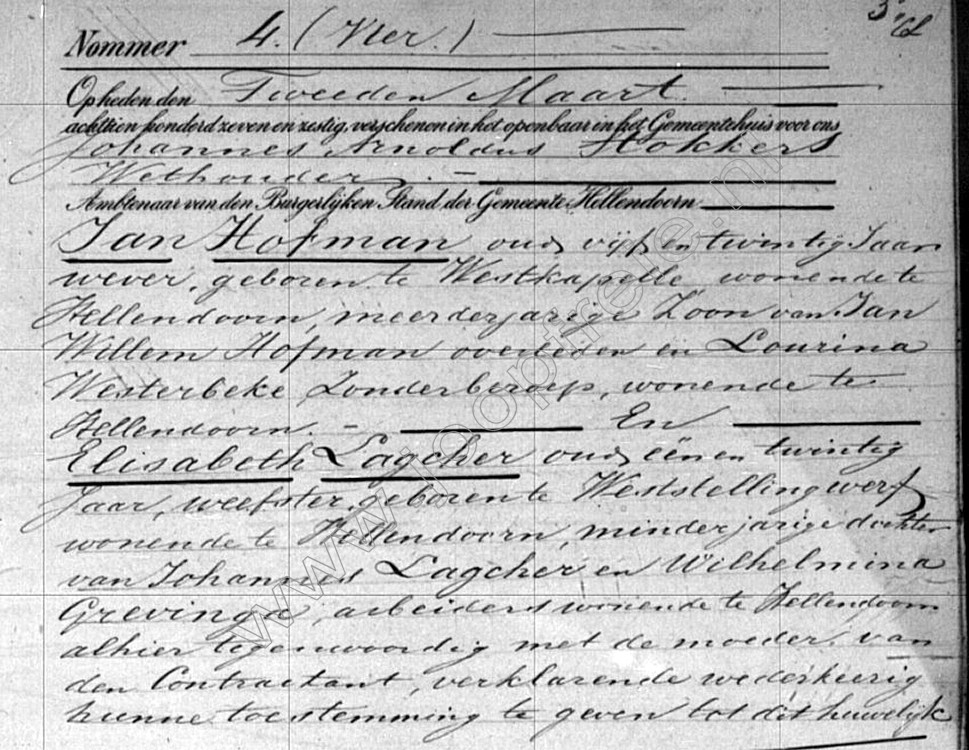 3e bl
Nommer 4. (Vier.)
Op heden den Tweeden Maart
achttien honderd zeven en zestig, verschenen in het openbaar in het Gemeentehuis voor ons
Johannes Arnoldus Stokkers
Wethouder. -
Ambtenaar van den Burgerlijken Stand der Gemeente Hellendoorn
Jan Hofman oud vijf en twintig Jaar
wever, geboren te Westkapelle wonende te
Hellendoorn, meerderjarige Zoon van Jan
Willem Hofman overleden en Lourina
Westerbeke Zonder beroep, wonende te
Hellendoorn. - En
Elisabeth Lagcher oud één en twintig
Jaar, weefster, geboren te Weststellingwerf
wonende te Hellendoorn, minderjarige dochter
van Johannes Lagcher en Wilhelmina
Grevinga, arbeiders wonende te Hellendoorn
alhier tegenwoordig met de moeder van
den Contractant, verklarende wederkeerig
hunne toestemming te geven tot dit huwelijk